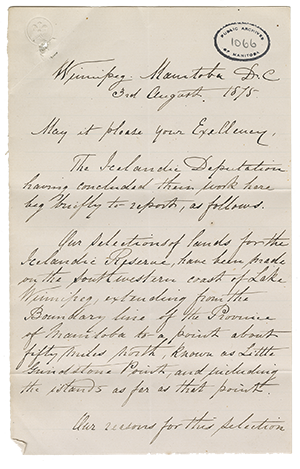 PUBLIC ARCHIVES
1066
OF MANITOBA
Winnipeg. Manitoba D.C
3rd August. 1875.
May it please your Excellency,
The Icelandic Deputation
having concluded their work here
beg briefly to report, as follows.
Our selections of lands for the
Icelandic Reserve, have been made
on the southwestern coast of Lake
Winnipeg, extending from the
Boundary line of the Province
of Manitoba to a point about
fifty miles north, known as Little
Grindstone Point, and including
the islands as far as that point.
Our reasons for this selection